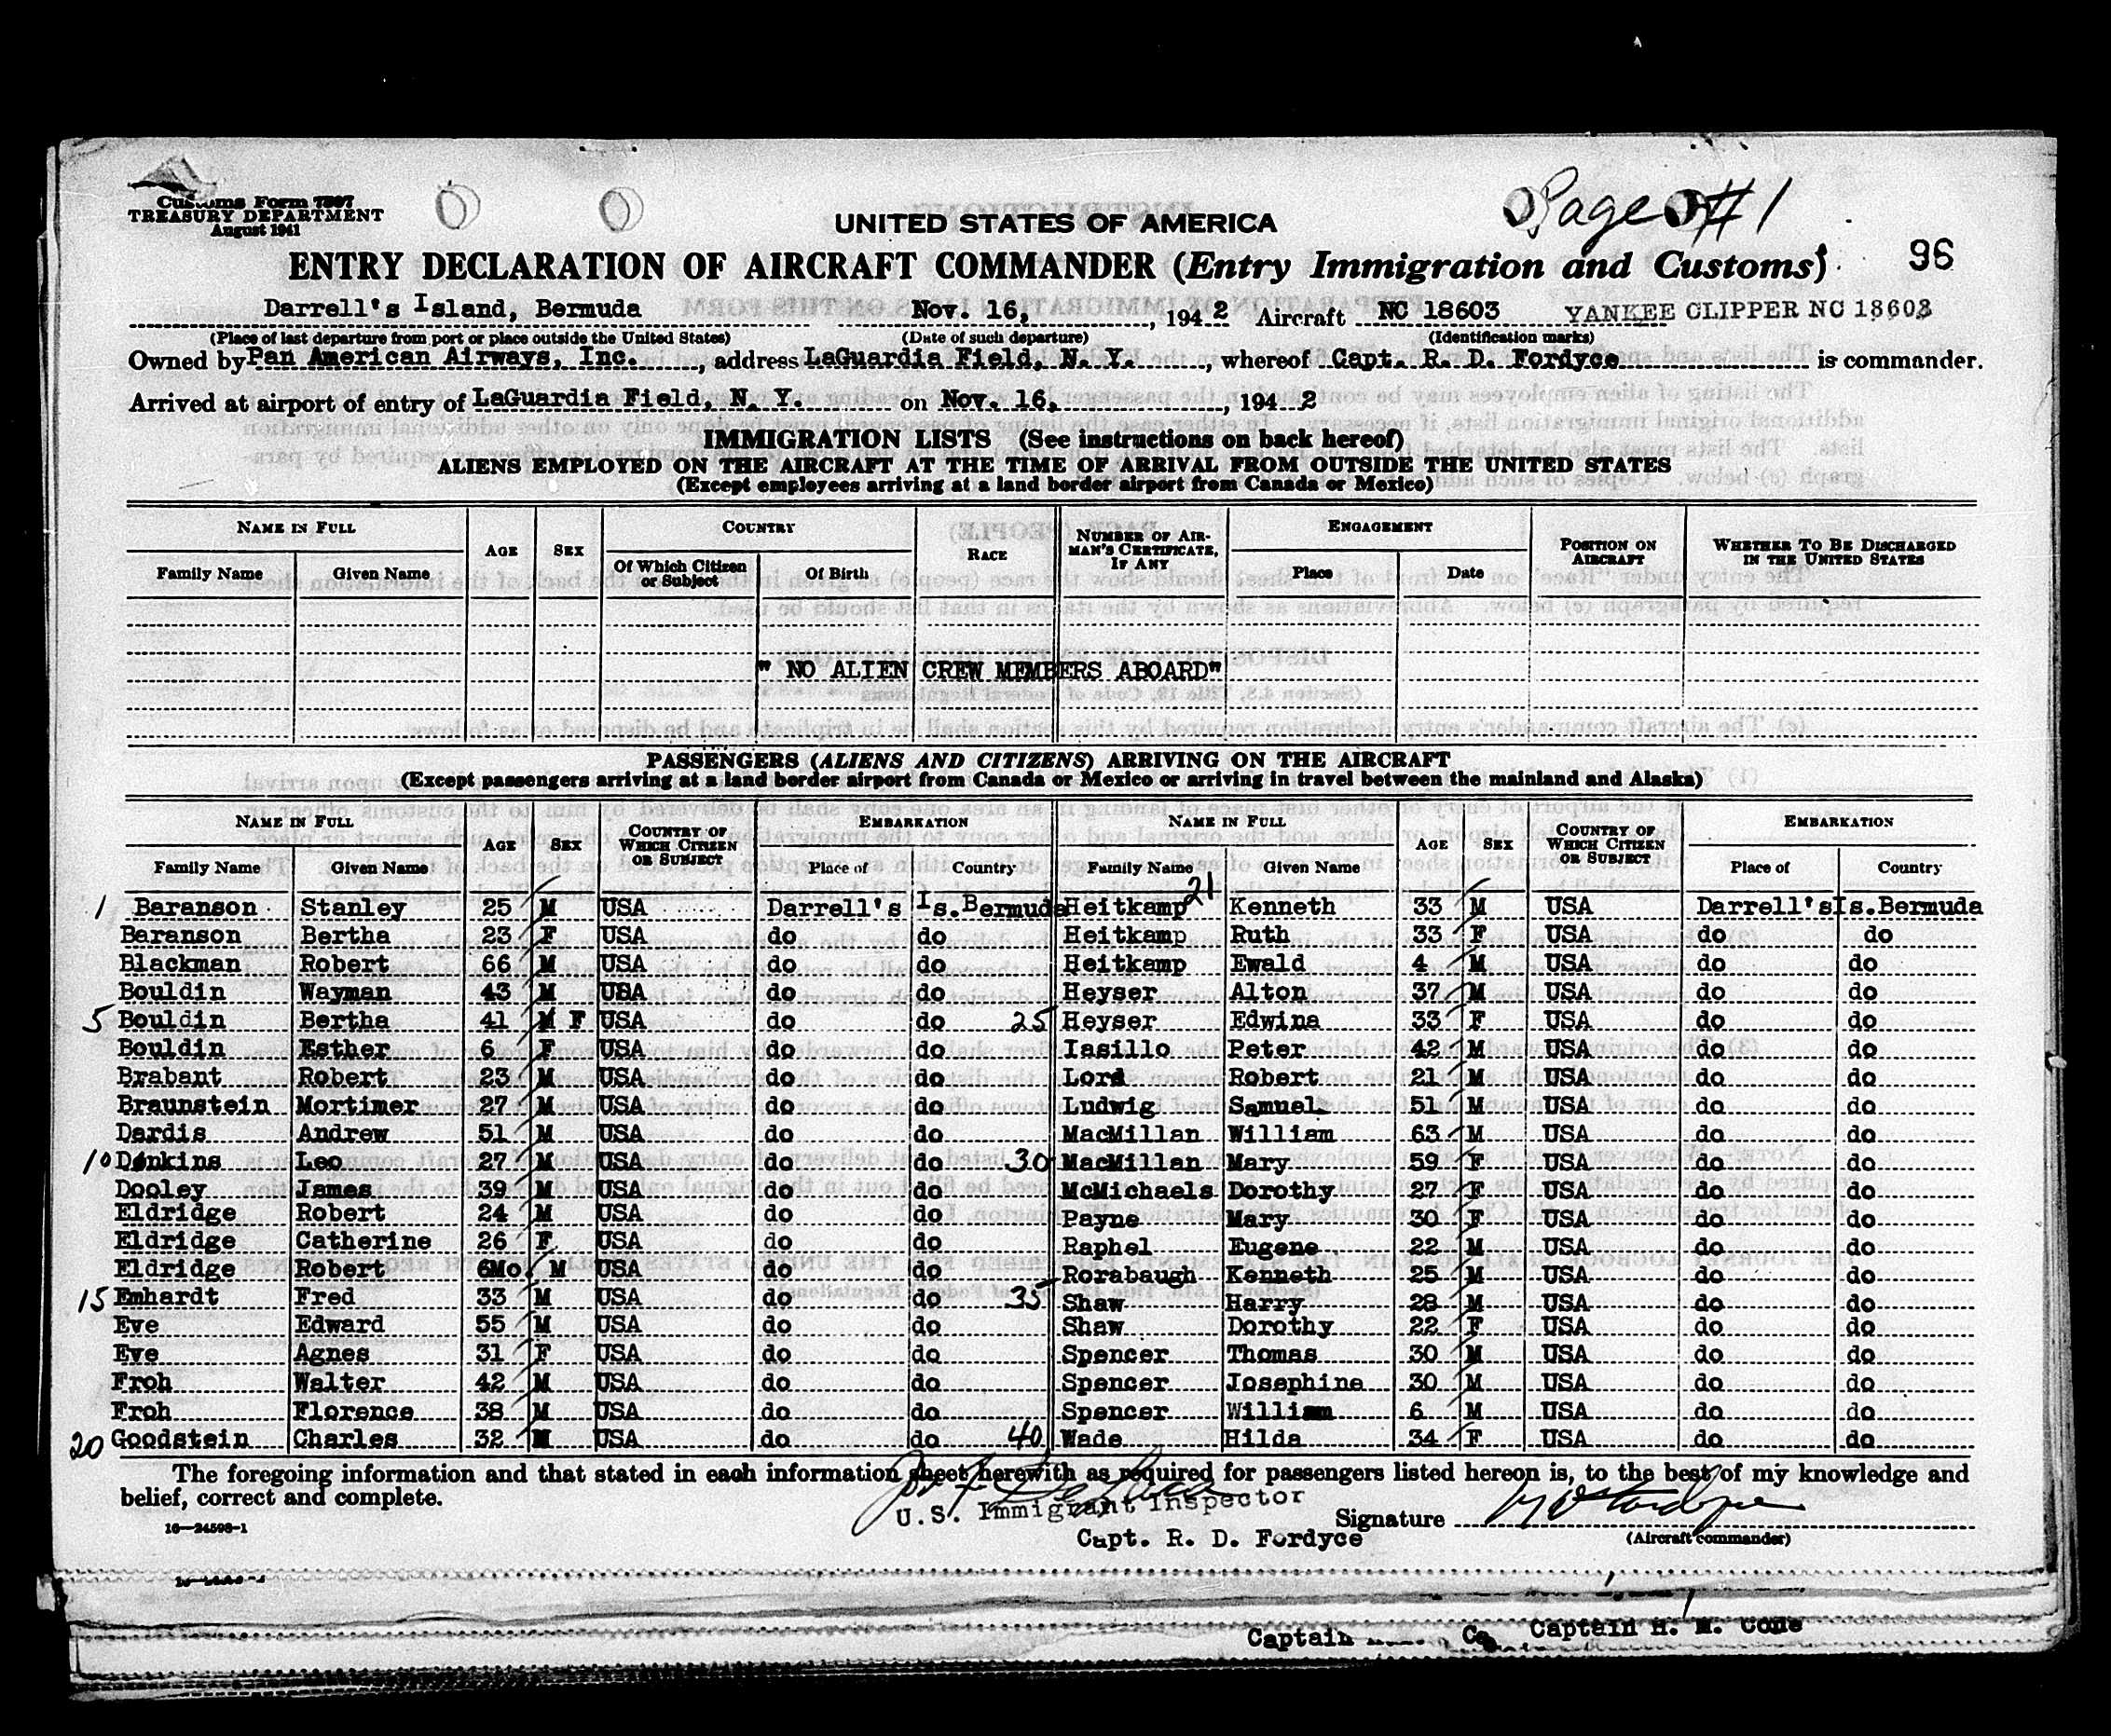 Customs Form 7507
TREASURY DEPARTMENT
August 1941
UNITED STATES OF AMERICA
Page #1
96
ENTRY DECLARATION OF AIRCRAFT COMMANDER (Entry Immigration and Customs)
Darrell's Island, Bermuda Nov. 16, , 1942 Aircraft NC 18603 YANKEE CLIPPER NC 18603
(Place of last departure from port or place outside the United States) (Date of such departure) (Identification marks)
Owned by Pan American Airways, Inc. , address LaGuardia Field, N. Y. , whereof Capt. R. D. Fordyce is commander.
Arrived at airport of entry of LaGuardia Field, N. Y. on Nov. 16, , 1942
IMMIGRATION LISTS (See instructions on back hereof)
ALIENS EMPLOYED ON THE AIRCRAFT AT THE TIME OF ARRIVAL FROM OUTSIDE THE UNITED STATES
(Except employees arriving at a land border airport from Canada or Mexico)
NAME IN FULL AGE SEX COUNTRY RACE NUMBER OF AIRMAN'S CERTIFICATE, IF ANY ENGAGEMENT POSITION ON AIRCRAFT WHETHER TO BE DISCHARGED IN THE UNITED STATES
Family Name Given Name Of Which Citizen or Subject Of Birth Place Date
" NO ALIEN CREW MEMBERS ABOARD"
PASSENGERS (ALIENS AND CITIZENS) ARRIVING ON THE AIRCRAFT
(Except passengers arriving at a land border airport from Canada or Mexico or arriving in travel between the mainland and Alaska)
NAME IN FULL AGE SEX COUNTRY OF WHICH CITIZEN OR SUBJECT EMBARKATION NAME IN FULL AGE SEX COUNTRY OF WHICH CITIZEN OR SUBJECT EMBARKATION
Family Name Given Name Place of Country Family Name Given Name Place of Country
1 Baranson Stanley 25 M USA Darrell's Is. Bermuda 21 Heitkamp Kenneth 33 M USA Darrell's Is. Bermuda
Baranson Bertha 23 F USA do do Heitkamp Ruth 33 F USA do do
Blackman Robert 66 M USA do do Heitkamp Ewald 4 M USA do do
Bouldin Wayman 43 M USA do do Heyser Alton 37 M USA do do
5 Bouldin Bertha 41 M F USA do do 25 Heyser Edwina 33 F USA do do
Bouldin Esther 6 F USA do do Iasillo Peter 42 M USA do do
Brabant Robert 23 M USA do do Lord Robert 21 M USA do do
Braunstein Mortimer 27 M USA do do Ludwig Samuel 51 M USA do do
Dardis Andrew 51 M USA do do MacMillan William 63 M USA do do
10 Leo 27 M USA do do 30 MacMillan Mary 59 F USA do do
Dooley James 39 M USA do do McMichaels Dorothy 27 F USA do do
Eldridge Robert 24 M USA do do Payne Mary 30 F USA do do
Eldridge Catherine 26 F USA do do Raphel Eugene 22 M USA do do
Eldridge Robert 6Mo. M USA do do Rorabaugh Kenneth 25 M USA do do
15 Emhardt Fred 33 M USA do do 35 Shaw Harry 28 M USA do do
Eve Edward 55 M USA do do Shaw Dorothy 22 F USA do do
Eve Agnes 31 F USA do do Spencer Thomas 30 M USA do do
Froh Walter 42 M USA do do Spencer Josephine 30 M USA do do
Froh Florence 38 M USA do do Spencer William 6 M USA do do
20 Goodstein Charles 32 M USA do do 40 Wade Hilda 34 F USA do do
The foregoing information and that stated in each information sheet herewith as required for passengers listed hereon is, to the best of my knowledge and
belief, correct and complete.
16—24598-1
U.S. Immigrant Inspector
Signature
Capt. R. D. Fordyce
(Aircraft commander)
Captain
Captain H. M. Cone